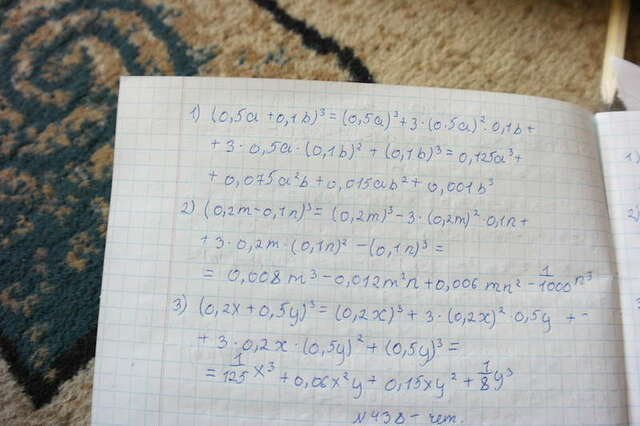 1) (0,5a + 0,1b)³ = (0,5a)³ + 3·(0,5a)²·0,1b +
+ 3·0,5a·(0,1b)² + (0,1b)³ = 0,125a³ +
+ 0,075a²b + 0,015ab² + 0,001b³
2) (0,2m - 0,1n)³ = (0,2m)³ - 3·(0,2m)²·0,1n +
+ 3·0,2m·(0,1n)² - (0,1n)³ =
= 0,008m³ - 0,012m²n + 0,006mn² - 1/1000 n³
3) (0,2x + 0,5y)³ = (0,2x)³ + 3·(0,2x)²·0,5y +
+ 3·0,2x·(0,5y)² + (0,5y)³ =
= 1/125 x³ + 0,06x²y + 0,15xy² + 1/8 y³
№438 - чет.
1)
2)